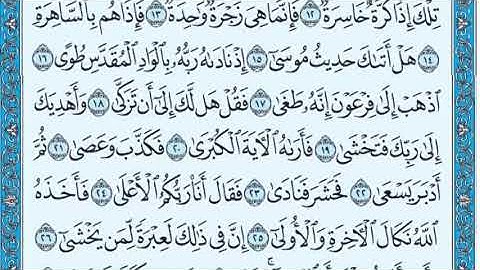 تِلْكَ إِذًا كَرَّةٌ خَاسِرَةٌ ١٢ فَإِنَّمَا هِيَ زَجْرَةٌ وَٰحِدَةٌ ١٣ فَإِذَا هُم بِٱلسَّاهِرَةِ
١٤ هَلْ أَتَىٰكَ حَدِيثُ مُوسَىٰٓ ١٥ إِذْ نَادَىٰهُ رَبُّهُۥ بِٱلْوَادِ ٱلْمُقَدَّسِ طُوًى ١٦
ٱذْهَبْ إِلَىٰ فِرْعَوْنَ إِنَّهُۥ طَغَىٰ ١٧ فَقُلْ هَل لَّكَ إِلَىٰٓ أَن تَزَكَّىٰ ١٨ وَأَهْدِيَكَ
إِلَىٰ رَبِّكَ فَتَخْشَىٰ ١٩ فَأَرَىٰهُ ٱلْءَايَةَ ٱلْكُبْرَىٰ ٢٠ فَكَذَّبَ وَعَصَىٰ ٢١ ثُمَّ
أَدْبَرَ يَسْعَىٰ ٢٢ فَحَشَرَ فَنَادَىٰ ٢٣ فَقَالَ أَنَا۠ رَبُّكُمُ ٱلْأَعْلَىٰ ٢٤ فَأَخَذَهُ
ٱللَّهُ نَكَالَ ٱلْءَاخِرَةِ وَٱلْأُولَىٰٓ ٢٥ إِنَّ فِي ذَٰلِكَ لَعِبْرَةً لِّمَن يَخْشَىٰٓ ٢٦